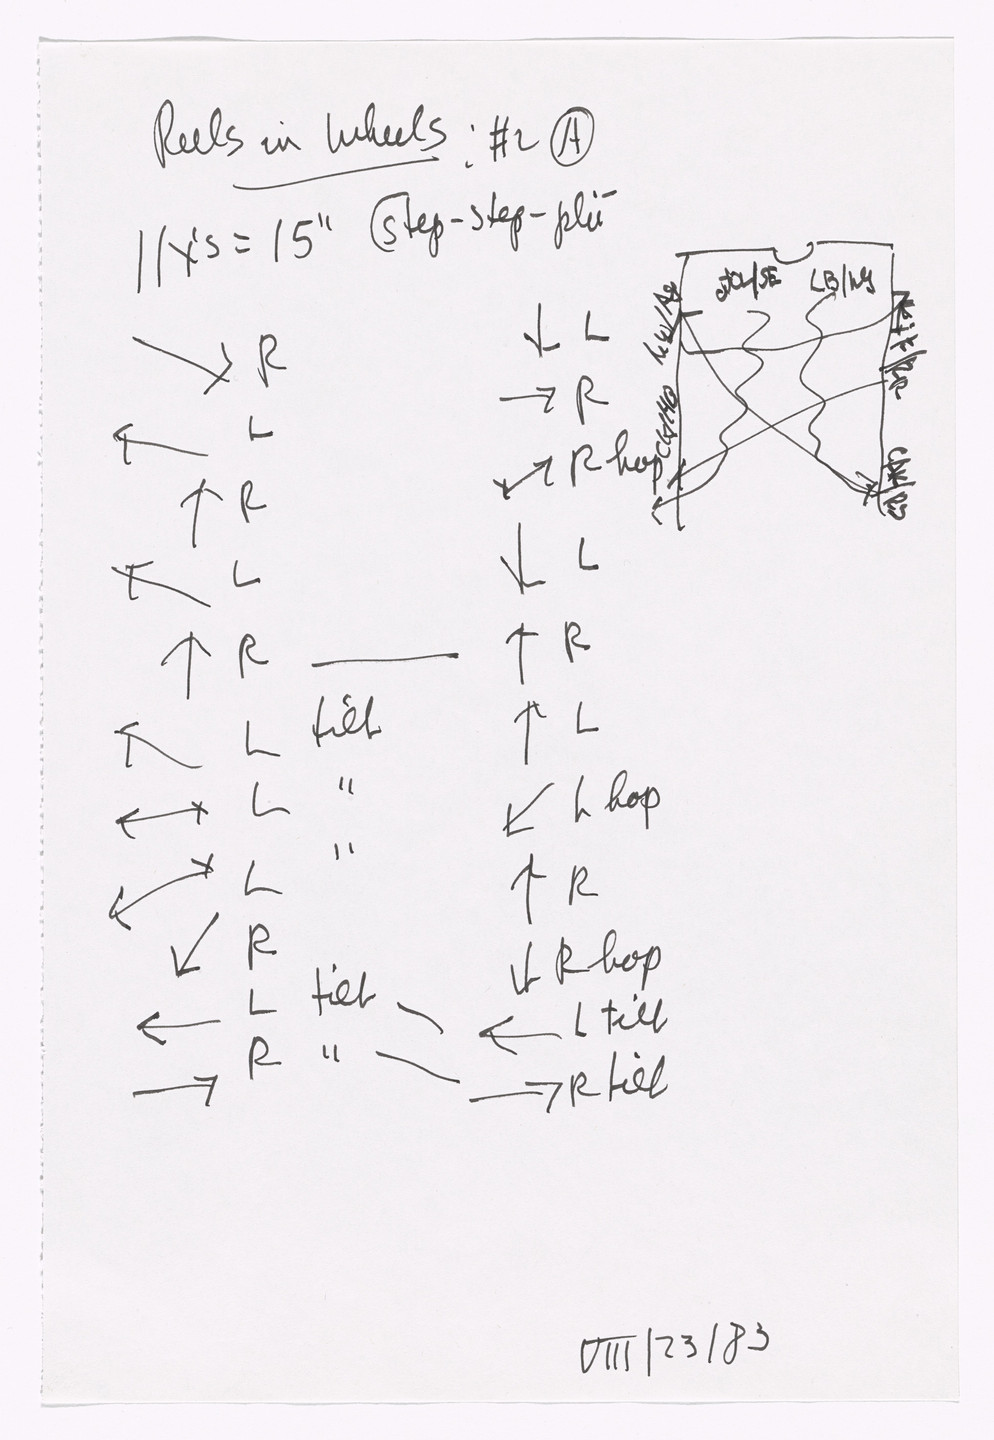 Reels in Wheels: #2 A
11 x's = 15" step-step-plié
R
L
R
L
R
L tilt
L "
L "
R
L tilt
R "
L
R
R hop
L
R
L
L hop
R
R hop
L tilt
R tilt
LB/
VIII/23/83